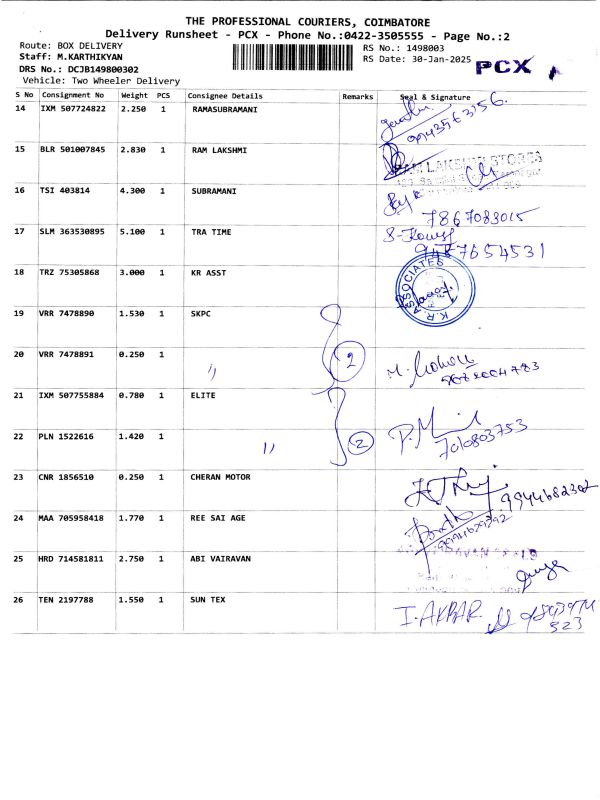 THE PROFESSIONAL COURIERS, COIMBATORE
Delivery Runsheet - PCX - Phone No.:0422-3505555 - Page No.:2
Route: BOX DELIVERY RS No.: 1498003
Staff: M.KARTHIKYAN RS Date: 30-Jan-2025 PCX
DRS No.: DCJB149800302
Vehicle: Two Wheeler Delivery
S No Consignment No Weight PCS Consignee Details Remarks Seal & Signature
14 IXM 507724822 2.250 1 RAMASUBRAMANI
9943563156.
15 BLR 501007845 2.830 1 RAM LAKSHMI
16 TSI 403814 4.300 1 SUBRAMANI
7867083015
17 SLM 363530895 5.100 1 TRA TIME
9487654531
18 TRZ 75305868 3.000 1 KR ASST
K.R. ASSOCIATES
19 VRR 7478890 1.530 1 SKPC
20 VRR 7478891 0.250 1 11 2
21 IXM 507755884 0.780 1 ELITE
22 PLN 1522616 1.420 1 11 2
7010803753
23 CNR 1856510 0.250 1 CHERAN MOTOR
9944682302
24 MAA 705958418 1.770 1 REE SAI AGE
25 HRD 714581811 2.750 1 ABI VAIRAVAN
26 TEN 2197788 1.550 1 SUN TEX
I. AKBAR